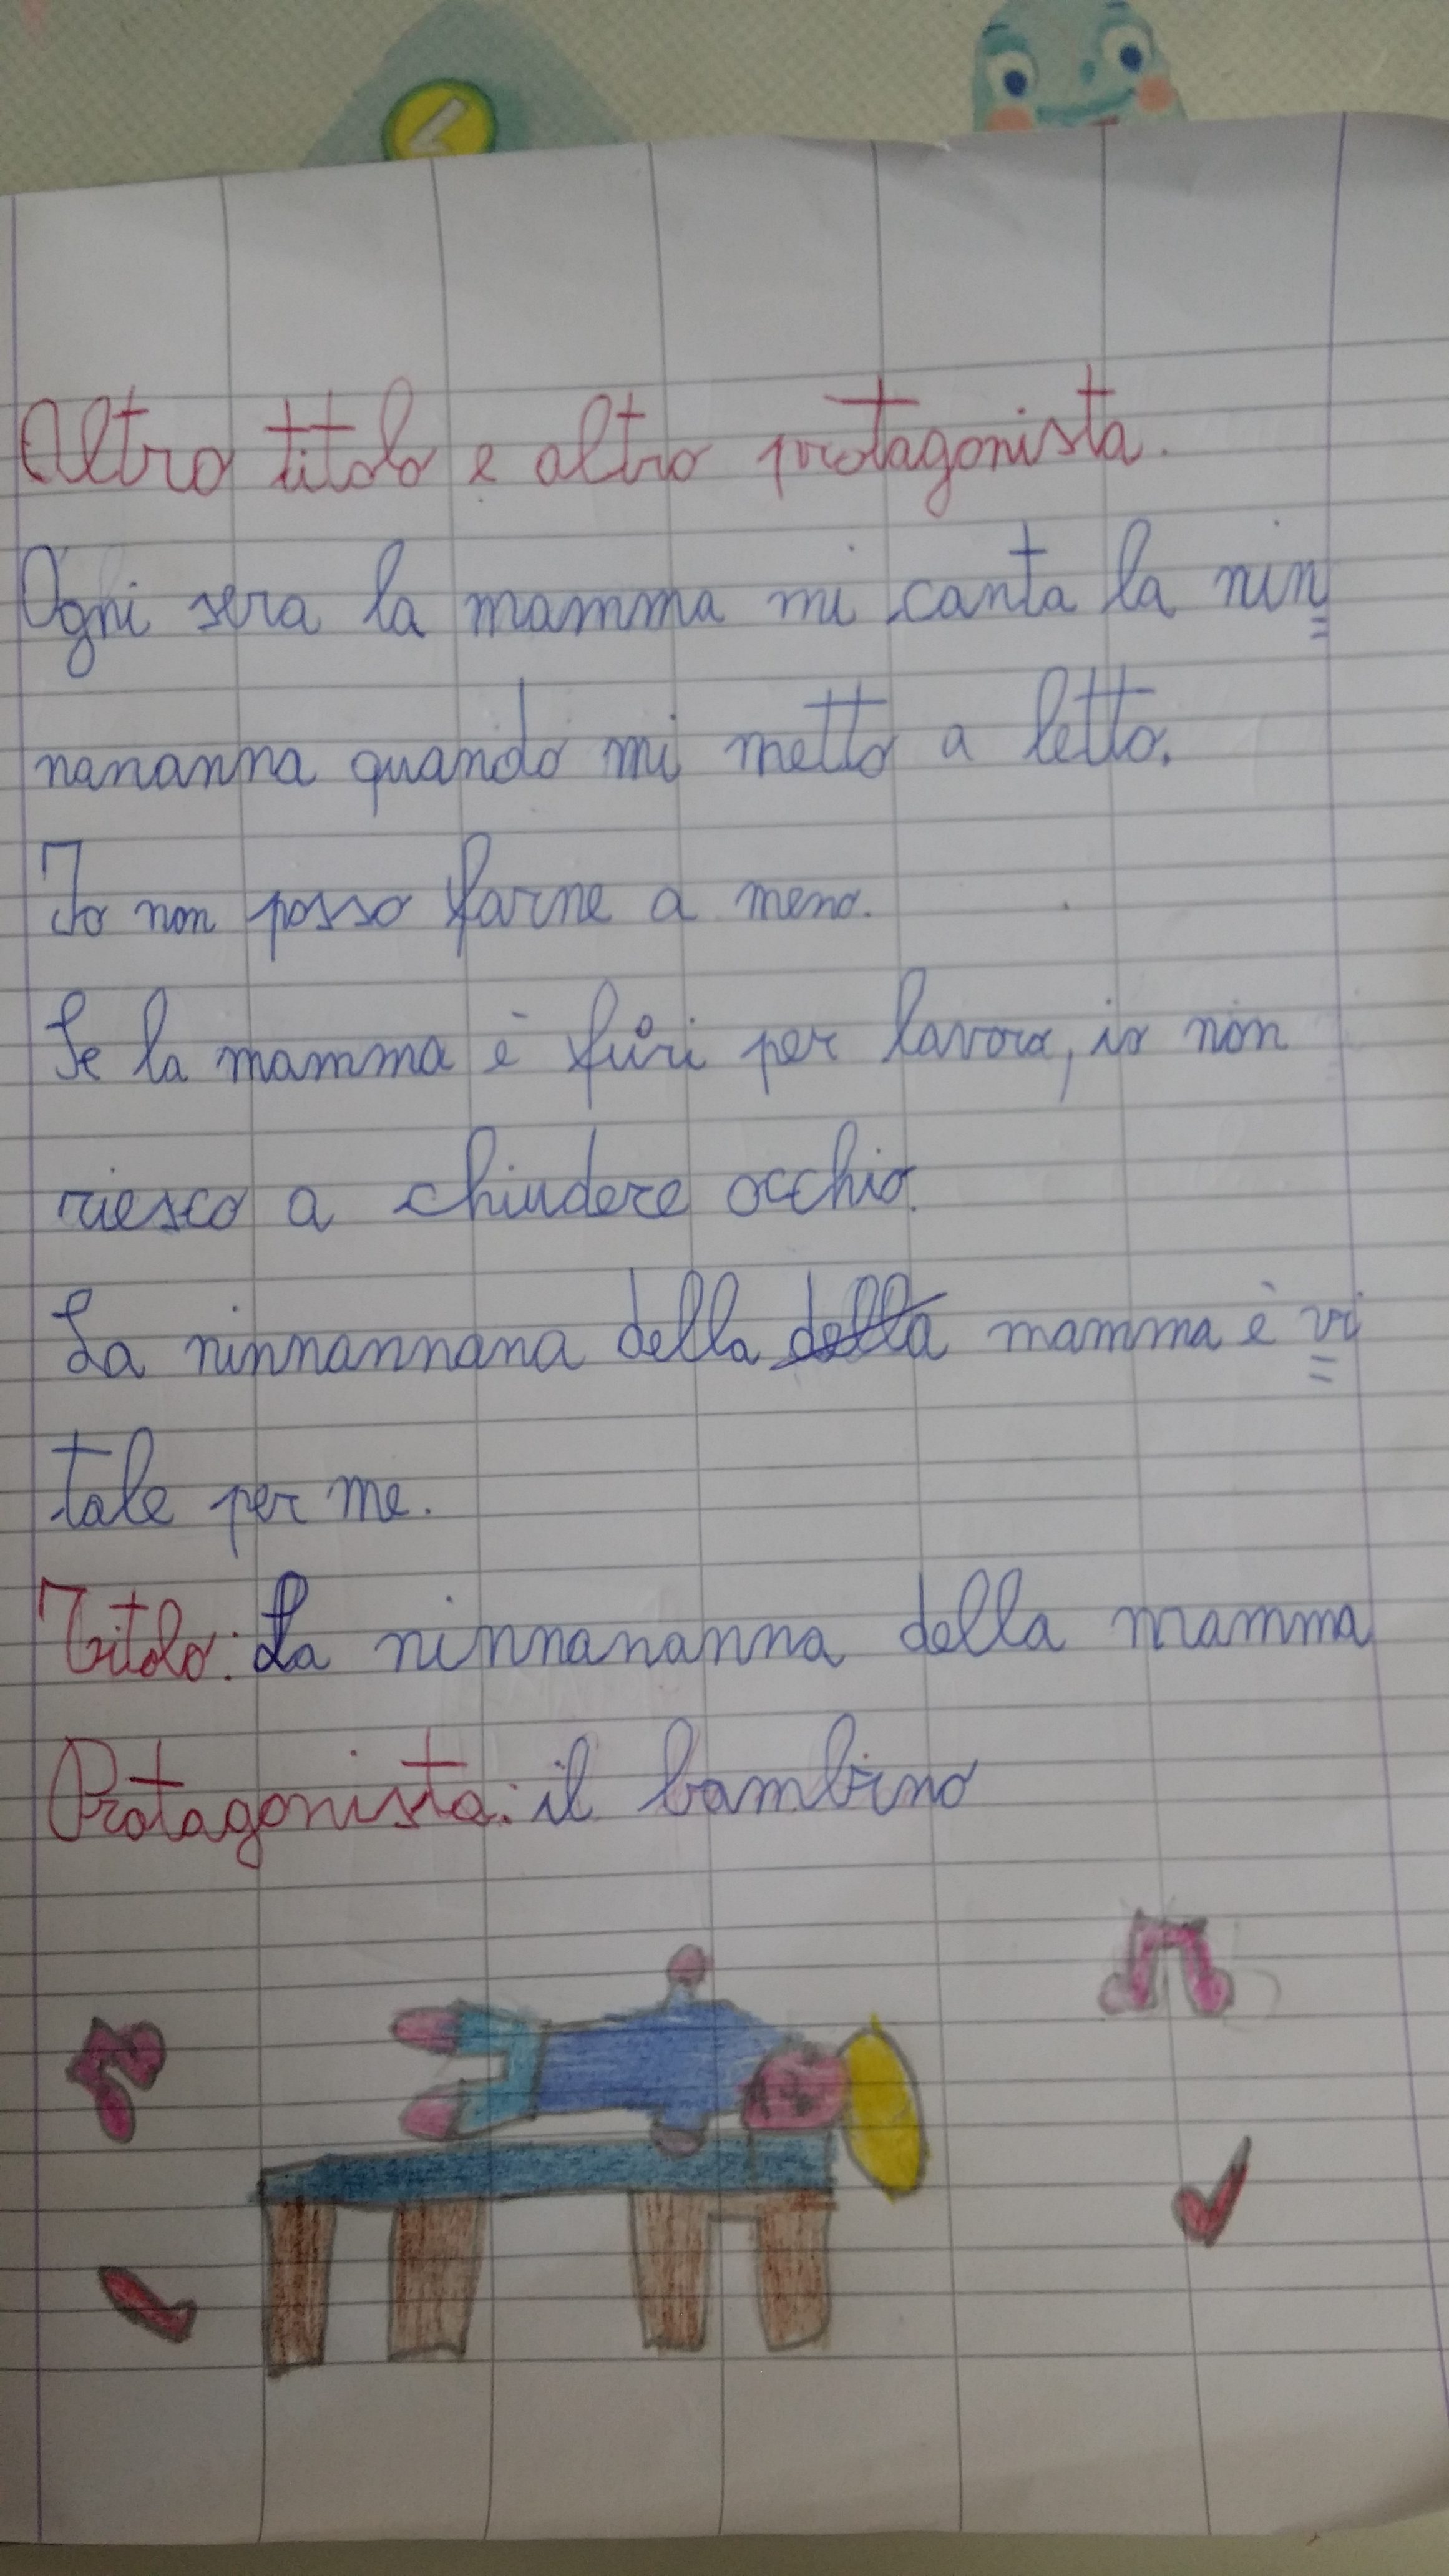 Altro titolo e altro protagonista.
Ogni sera la mamma mi canta la nin=
nananna quando mi metto a letto.
Io non posso farne a meno.
Se la mamma è fuori per lavoro, io non
riesco a chiudere occhio.
La ninnannana della della mamma è vi=
tale per me.
Titolo: La ninnananna della mamma
Protagonista: il bambino